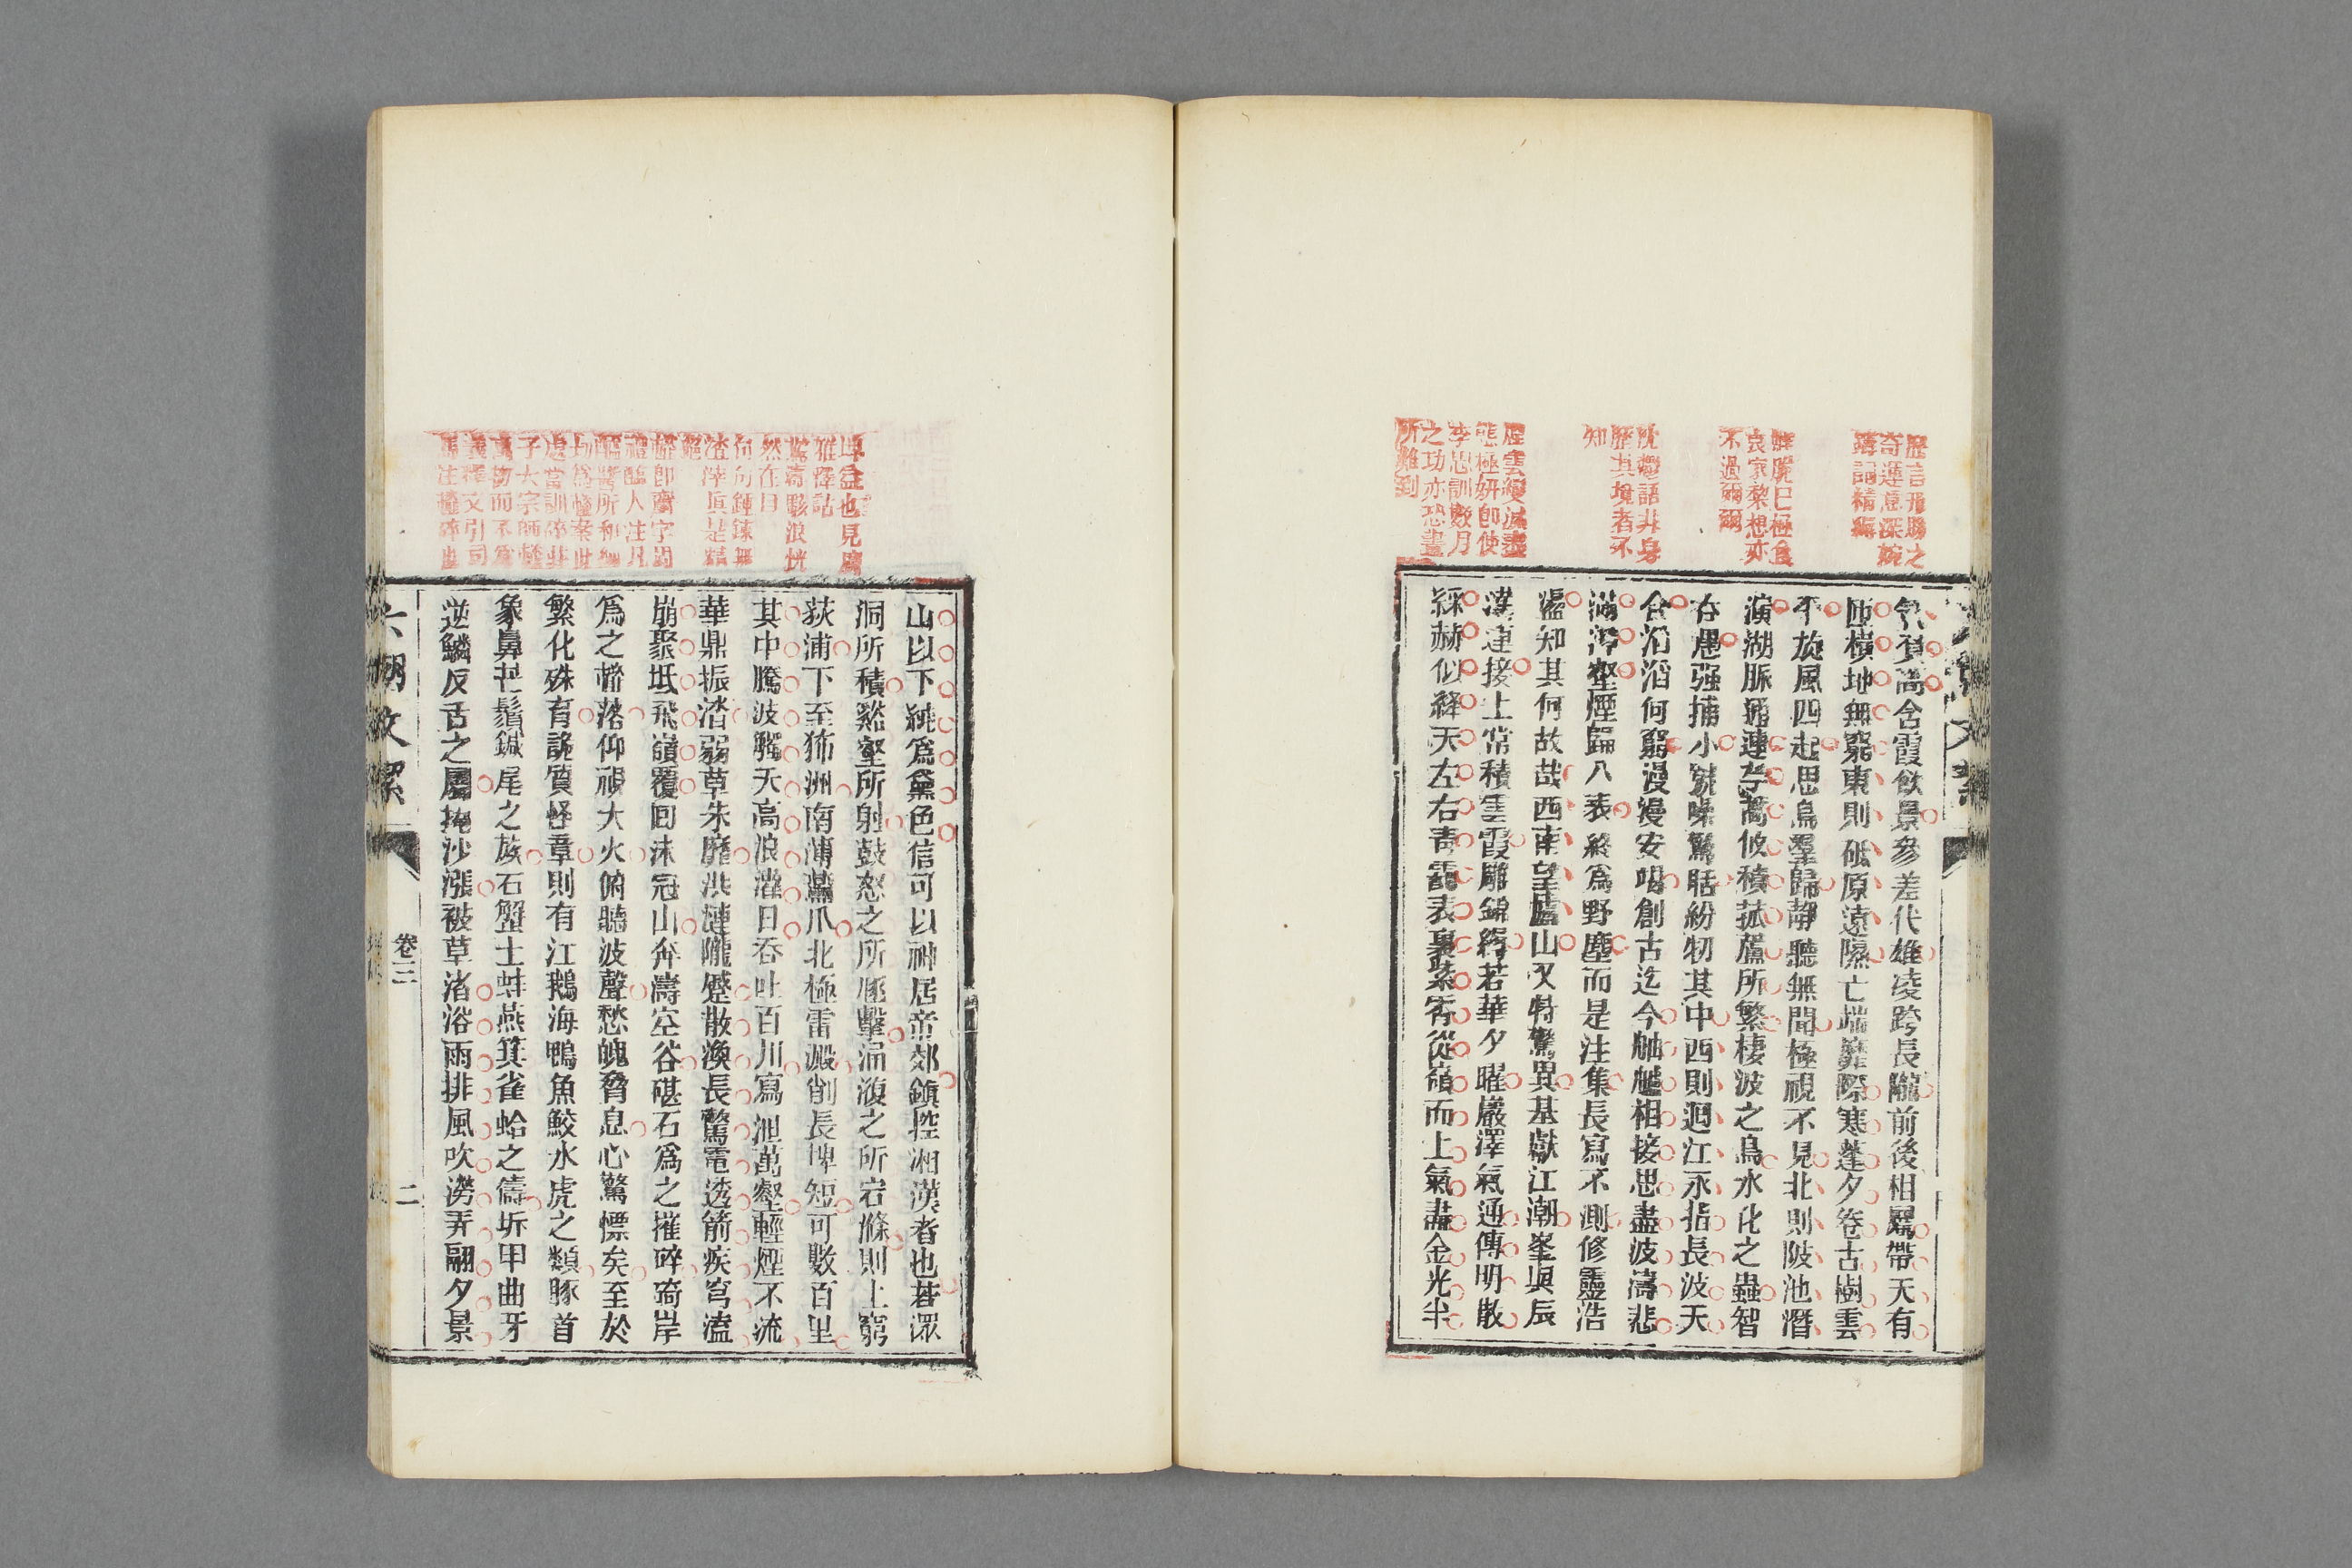 歷言形勝之
奇運意深婉
鑄詞精縟
氣負高含霞飲景參差代雄凌跨長隴前後相屬帶天有
匝橫地無窮東則砥原遠隰亡端靡際寒蓬夕卷古樹雲
平旋風四起思鳥羣歸靜聽無聞極視不見北則陂池潛
演湖脈通連苧蒿攸積菰蘆所繁棲波之鳥水化之蟲智
吞愚强捕小號噪驚聒紛牣其中西則迴江永指長波天
合滔滔何窮漫漫安竭創古迄今舳艫相接思盡波濤悲
滿潭壑煙歸八表終爲野塵而是注集長寫不測修靈浩
盪知其何故哉西南望廬山又特驚異基獻江潮峯與辰
漢連接上常積雲霞雕錦縟若華夕曜巖澤氣通傳明散
綵赫似絳天左右靑靄表裏紫霄從嶺而上氣盡金光半
不過爾爾
知
煙雲變滅盡
態極妍卽使
李思訓數月
之功亦恐畫
所難到
山以下純爲黛色信可以神居帝郊鎭控湘漢者也若潀
洞所積谿壑所射鼓怒之所豗擊涌澓之所宕滌則上窮
荻浦下至狶洲南薄鷰爪北極雷澱削長埤短可數百里
其中騰波觸天高浪灌日吞吐百川寫泄萬壑輕煙不流
華鼎振涾弱草朱靡洪漣隴蹙散渙長驚電透箭疾穹溘
崩聚坻飛嶺覆回沫冠山奔濤空谷碪石爲之摧碎碕岸
爲之䪠落仰視大火俯聽波聲愁魄脅息心驚慓矣至於
繁化殊育詭質怪章則有江鵝海鴨魚鮫水虎之類豚首
象鼻芒鬚鍼尾之族石蟹土蚌燕箕雀蛤之儔坼甲曲牙
逆鱗反舌之屬掩沙漲被草渚浴雨排風吹澇弄翮夕景
埤益也見廣
雅釋詁
驚濤駭浪恍
然在目
句句鍾鍊無
渣滓真是精
絕
六朝文絜
卷三
二